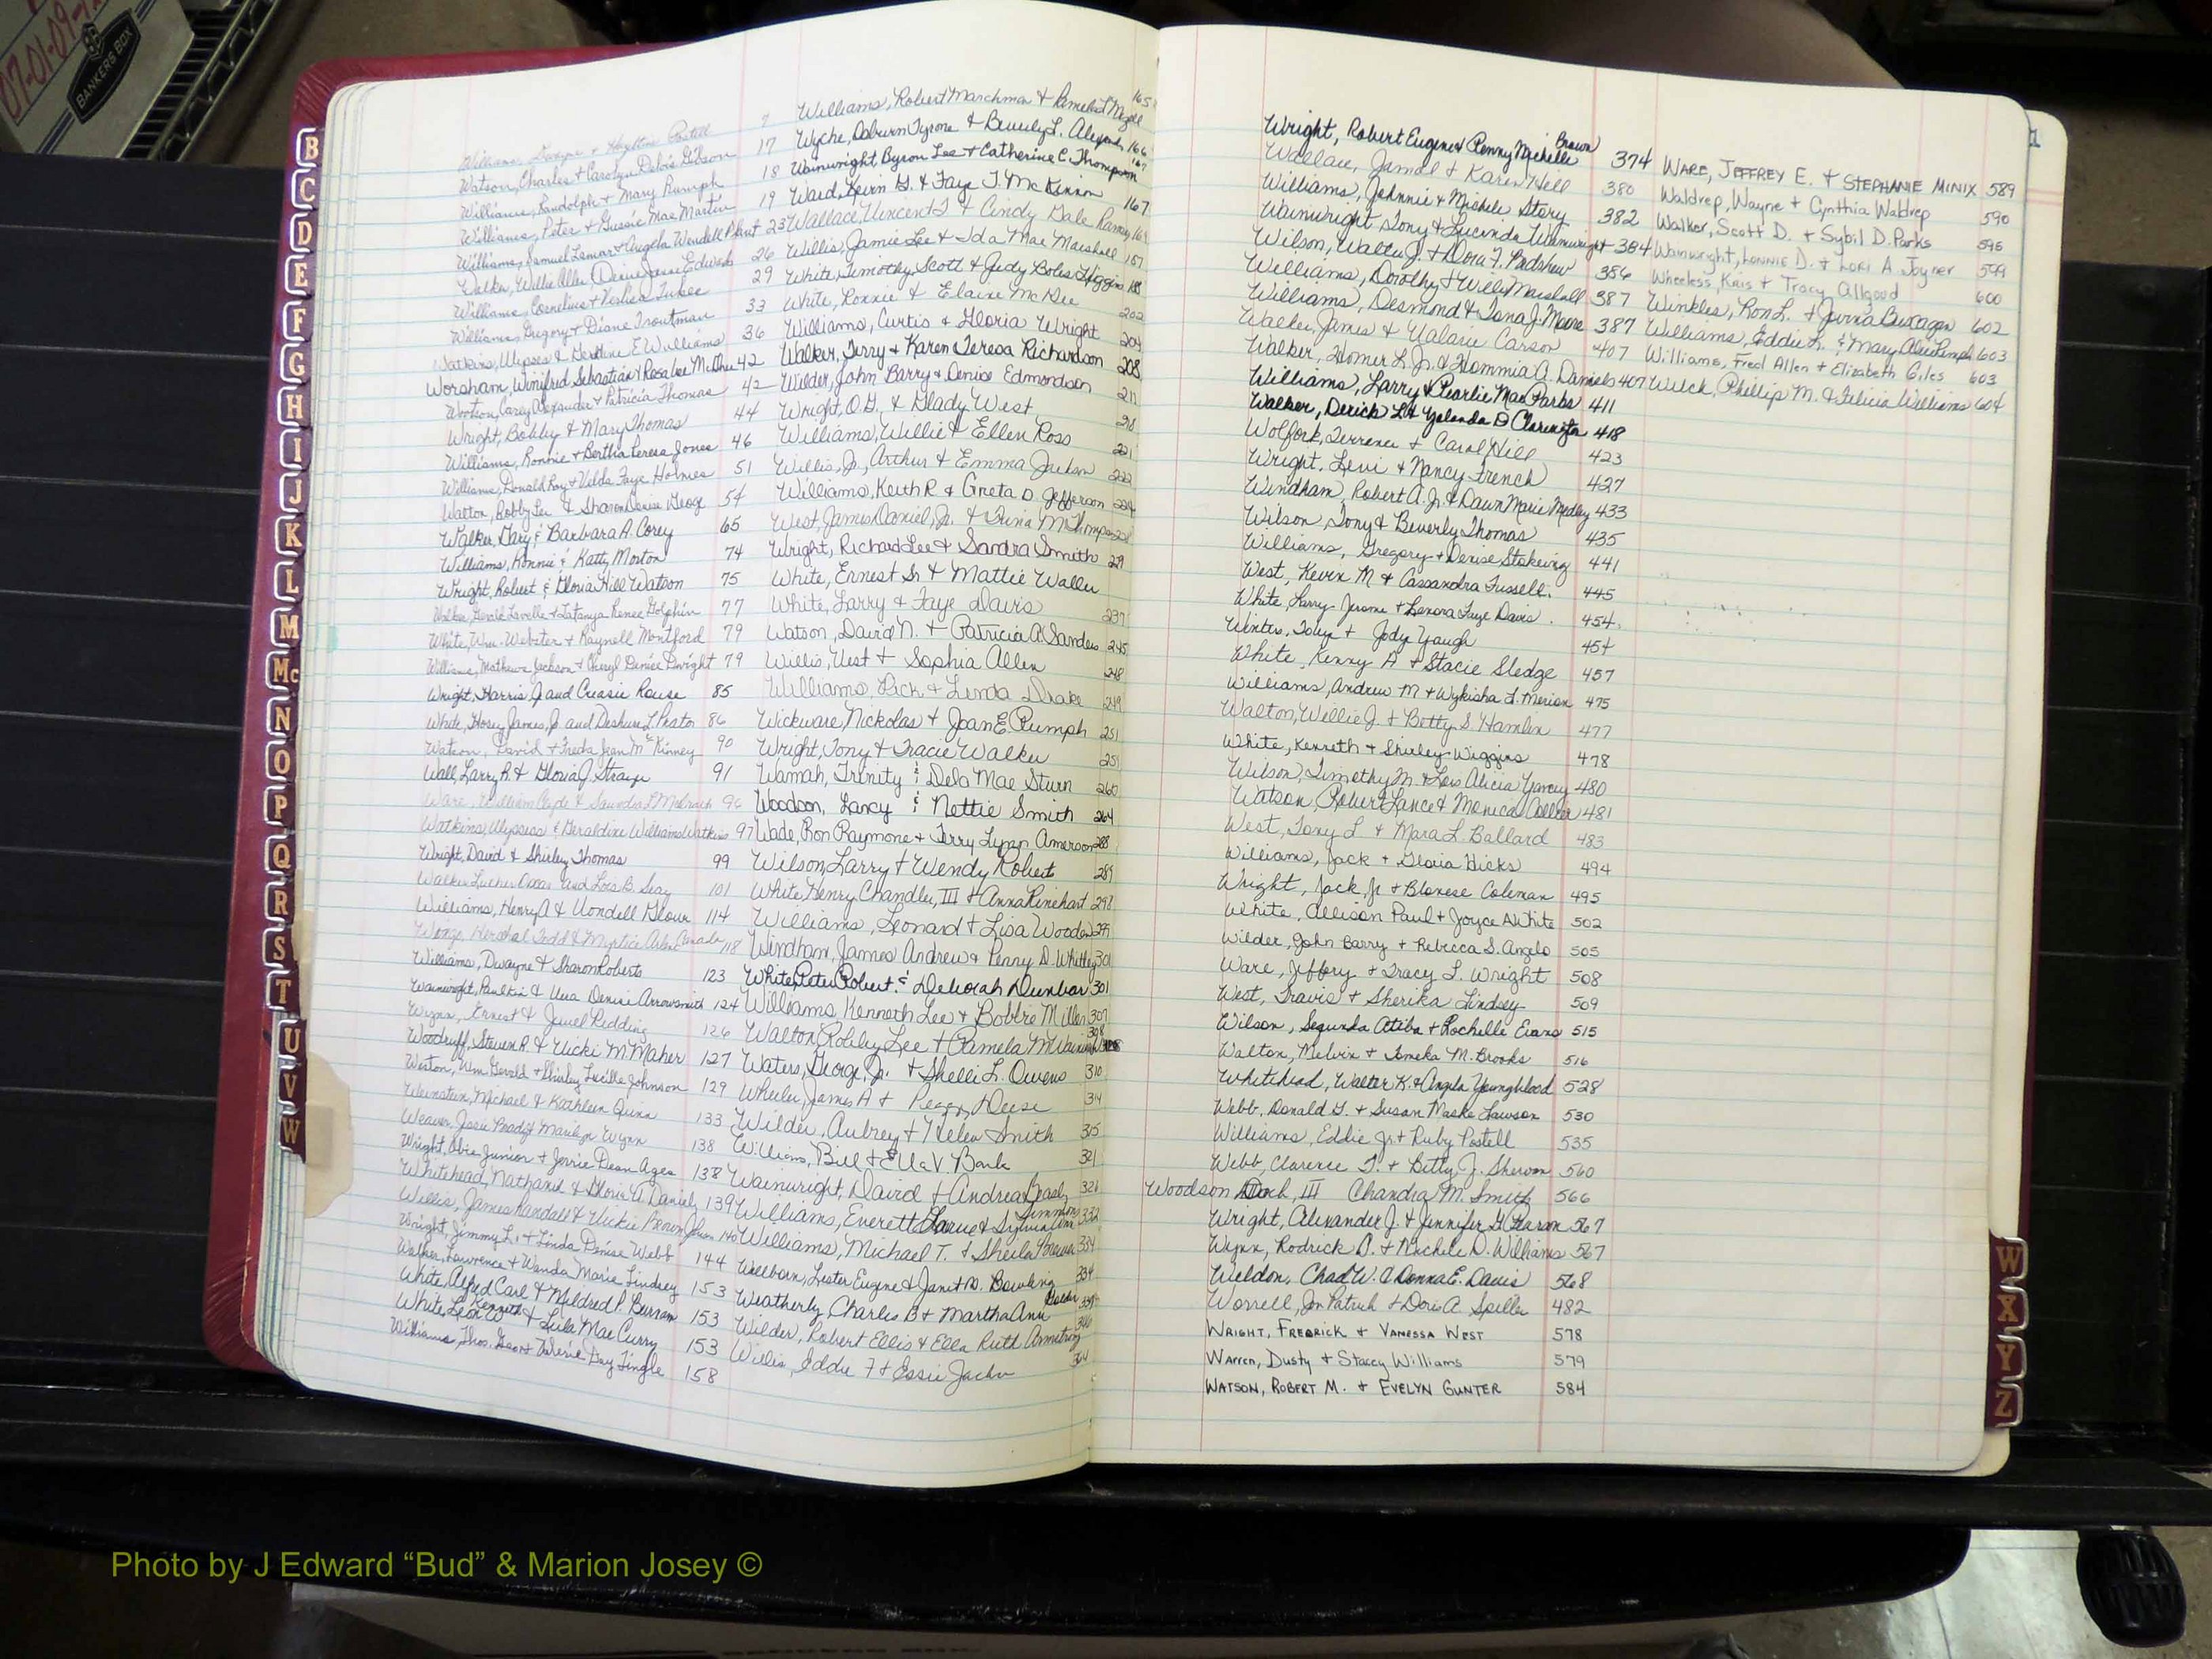 07-01-09-12
BANKERS BOX
B
C
D
E
F
G
H
I
J
K
L
M
Mc
N
O
P
Q
R
S
T
U
V
W
7
Watson, Charles & Carolyn Delois Gibson 17
Williams, Randolph & Mary Rumph 18
Williams, Peter & Gussie Mae Martin 19
Williams, Samuel Lamar & Angela Wendell Plant 23
Walker, Willie Allen 26
Williams, Cornelius & 29
Williams, Gregory & Diane Troutman 33
Watkins, Ulysses & E Williams 36
Woraham, Winifred Sebastian & Rosa Lee 42
Wootson, Carey Alexander & Patricia Thomas 42
Wright, Bobby & Mary Thomas 44
Williams, Ronnie & Bertha Teresa Jones 46
Williams, Donald Ray & Velda Faye Holmes 51
Walton, Bobby Lee & Sharon Denise 54
Walker, Gary & Barbara A. Corey 65
Williams, Ronnie & Katty Morton 74
Wright, Robert & Gloria Hill Watson 75
Walker, Gerald Lavelle & Latanya Renee Dolphin 77
White, Wm. Webster & Raynell Montford 79
Williams, Mathews Jackson & Cheryl Denise Dwright 79
Wright, Harris Jr and Creasie Rouse 85
White, Hosey James, Jr and 86
Watson, David & Freda Jean McKinney 90
Wall, Larry R. & Gloria J. 91
Ware, William Clyde & 96
Watkins, Ulyssess & Geraldine Williams Watkins 97
Wright, David & Shirley Thomas 99
Walker, Luther and Lois B. Seay 101
Williams, Henry A & Vondell Glover 114
118
Williams, Dwayne & Sharon Roberts 123
Wainwright, Paul & Vera Denise Arrowsmith 124
Wynn, Ernest & Jewel Redding 126
Woodruff, Steven R. & Vicki M. Maher 127
Weston, Wm Gerold & Shirley Lucille Johnson 129
Weinstein, Michael & Kathleen Quinn 133
Weaver, Jessie & Marilyn Wynn 138
Wright, Obie Junior & Jerrie Dean Ages 138
Whitehead, Nathaniel & Gloria A. Daniely 139
Willis, James Randall & Vickie Brown 140
Wright, Jimmy L. & Linda Denise Webb 144
Walker, Lawrence & Wanda Marie Lindsey 153
White, Alfred Carl & Mildred P. 153
White, Leon Kenneth & Leila Mae Curry 153
Williams, Thos. & Valerie Day Tingle 158
Williams, Robert Marchman & 165
Wyche, Tyrone & Beverly L. Alexander 166
Wainwright, Byron Lee & Catherine C. Thompson 167
Ward, Kevin G. & Faye T. McKinnon 167
Wallace, Vincent T. & Cindy Gale
Willis, Jamie Lee & Ida Mae Marshall
White, Timothy Scott & Judy Boles Higgins
White, Ronnie & Elaine McGee 202
Williams, Curtis & Gloria Wright 204
Walker, Terry & Karen Teresa Richardson 208
Wilder, John Barry & Denise Edmondson 211
Wright, O.G. & Glady West 218
Williams, Willie & Ellen Ross 221
Willis, Jr, Arthur & Emma Jackson 222
Williams, Keith R & Greta D. Jefferson
West, James Daniel, Jr. & Trina M.
Wright, Richard Lee & Sandra Smith 229
White, Ernest Sr & Mattie Waller
White, Larry & Faye Davis 237
Watson, David N. & Patricia A Sanders 245
Willis, West & Sophia Allen 248
Williams, Rich & Linda Drake 249
Wickware, Nickolas & Joan E. Rumph 251
Wright, Tony & Tracie Walker 251
Wamah, Trinity & Dela Mae Sturn 260
Woodson, Lancy & Nettie Smith 264
Wade, Ron Raymone & Terry Lynn Amerson 288
Wilson, Larry & Wendy Robert 289
White, Henry Chandler, III & Anna Rinehart 298
Williams, Leonard & Lisa Wooden 299
Windham, James Andrew & Penny D. Whitley 301
White, Peter Robert & Deborah Dunbar 301
Williams, Kenneth Lee & Bobbie Miller 307
Walton, Robby Lee & Pamela M. 308
Waters, George, Jr. & Shelli L. Owens 310
Wheeler, James A & Peggy Deese 314
Wilder, Aubrey & Helen Smith 315
Williams, Bill & Ella V. Bank 321
Wainwright, David & Andrea 326
Williams, Everett & Simmons 332
Williams, Michael T. & Sheila 334
Wellborn, Lester Eugene & Janet D. Bowling 334
Weatherly, Charles B & Martha Ann
Wilder, Robert Ellis & Ella Ruth Armstrong
Willis, Eddie F & Essie
Wright, Robert Eugene & Penny Michelle Brown 374
Wallace, Jamel & Karen Hill 380
Williams, Johnnie & Michele Story 382
Wainwright, Tony & Lucinda Wainwright 384
Wilson, Walter J. & Dora F. Bradshaw 386
Williams, Dorothy & Willie Marshall 387
Williams, Desmond & Tana J. Moore 387
Walker, James & Valarie Carson 407
Walker, Homer L. Jr. & Hommia A. Daniels 407
Williams, Larry & Pearlie Mae Parks 411
Walker, Derick L & Yolanda D 418
Wolfork, Terrence & Carol Hill 423
Wright, Levi & Nancy French 427
Windham, Robert A. Jr. & Dawn Marie Medley 433
Wilson, Tony & Beverly Thomas 435
Williams, Gregory & Denise 441
West, Kevin M & Cassandra Fussell 445
White, Larry Jerome & Lenora Faye Davis 454
Winters, Toby & Jody Yaugh 454
White, Kenny A & Stacie Sledge 457
Williams, Andrew M & Wykisha L. Merion 475
Walton, Willie J. & Betty S. Hamlin 477
White, Kenneth & Shirley Wiggins 478
Wilson, Timothy M. & Lois Alicia Yancey 480
Watson, Robert Lance & Monica 481
West, Tony L & Mara L. Ballard 483
Williams, Jack & Gloria Hicks 494
Wright, Jack, Jr & Blonese Coleman 495
White, Allison Paul & Joyce A White 502
Wilder, John Barry & Rebecca S. Angelo 505
Ware, Jeffery & Tracy L. Wright 508
West, Travis & Sherika Lindsey 509
Wilson, Segunda Atiba & Rochelle Evans 515
Walton, Melvin & Tomeka M. Brooks 516
Whitehead, Walter K. & Angela Youngblood 528
Webb, Donald G. & Susan Maske Lawson 530
Williams, Eddie Jr & Ruby Postell 535
Webb, Clarence T. & Betty J. 560
Woodson Doch, III Chandra M. Smith 566
Wright, Alexander J. & Jennifer 567
Wynn, Rodrick D. & Michele D. Williams 567
Weldon, Chad W. & Donna E. Davis 568
Worrell, Jon Patrick & Doris A Spiller 482
WRIGHT, FREDRICK & VANESSA WEST 578
Warren, Dusty & Stacey Williams 579
WATSON, ROBERT M. & EVELYN GUNTER 584
WARE, JEFFREY E. & STEPHANIE MINIX 589
Waldrep, Wayne & Cynthia Waldrep 590
Walker, Scott D. & Sybil D. Parks 595
Wainwright, Lonnie D. & Lori A Joyner 599
Wheeless, Kris & Tracy Allgood 600
Winkles, Ron L. & 602
Williams, Eddie L. & Mary Alice 603
Williams, Fred Allen & Elizabeth Giles 603
Welch, Phillip M. & Felicia Williams 604
W
X
Y
Z
Photo by J Edward “Bud” & Marion Josey ©